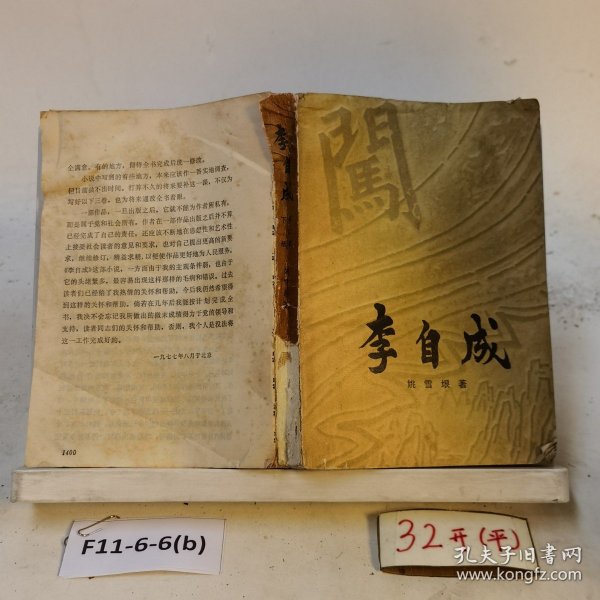 全满意，有的地方，留待全书完成后统一修改。
小说中写到的有些地方，本来应该作一番实地调查，
但目前抽不出时间，打算不久的将来要补这一课，不仅为
写好以下三卷，也为将来通改全书着眼。
一部作品，一旦出版之后，它就不能为作者所私有，
而是属于党和社会所有。作者在一部作品出版之后并不算
已经完成了自己的责任，还应该不断地在思想性和艺术性
上接受社会读者的意见和要求，也对自己提出更高的新要
求，继续修订，精益求精，以便使作品更好地为人民服务。
《李自成》这部小说，一方面由于我的主观条件弱，也由于
它的头绪繁多，最容易出现这样那样的毛病和错误。过去
读者们已经给了我热情的关怀和帮助，今后我仍然希望得
到这样的关怀和帮助。倘若在几年后我能按计划完成全
书，我决不会忘记我所做出的微末成绩得力于党的领导和
支持，读者同志们的关怀和帮助，否则，我个人是没法将
这一工作完成好的。
一九七七年八月于北京
1400
李自成
闯
李自成
姚雪垠著
F11-6-6(b)
32开(平)
孔夫子旧书网
www.kongfz.com